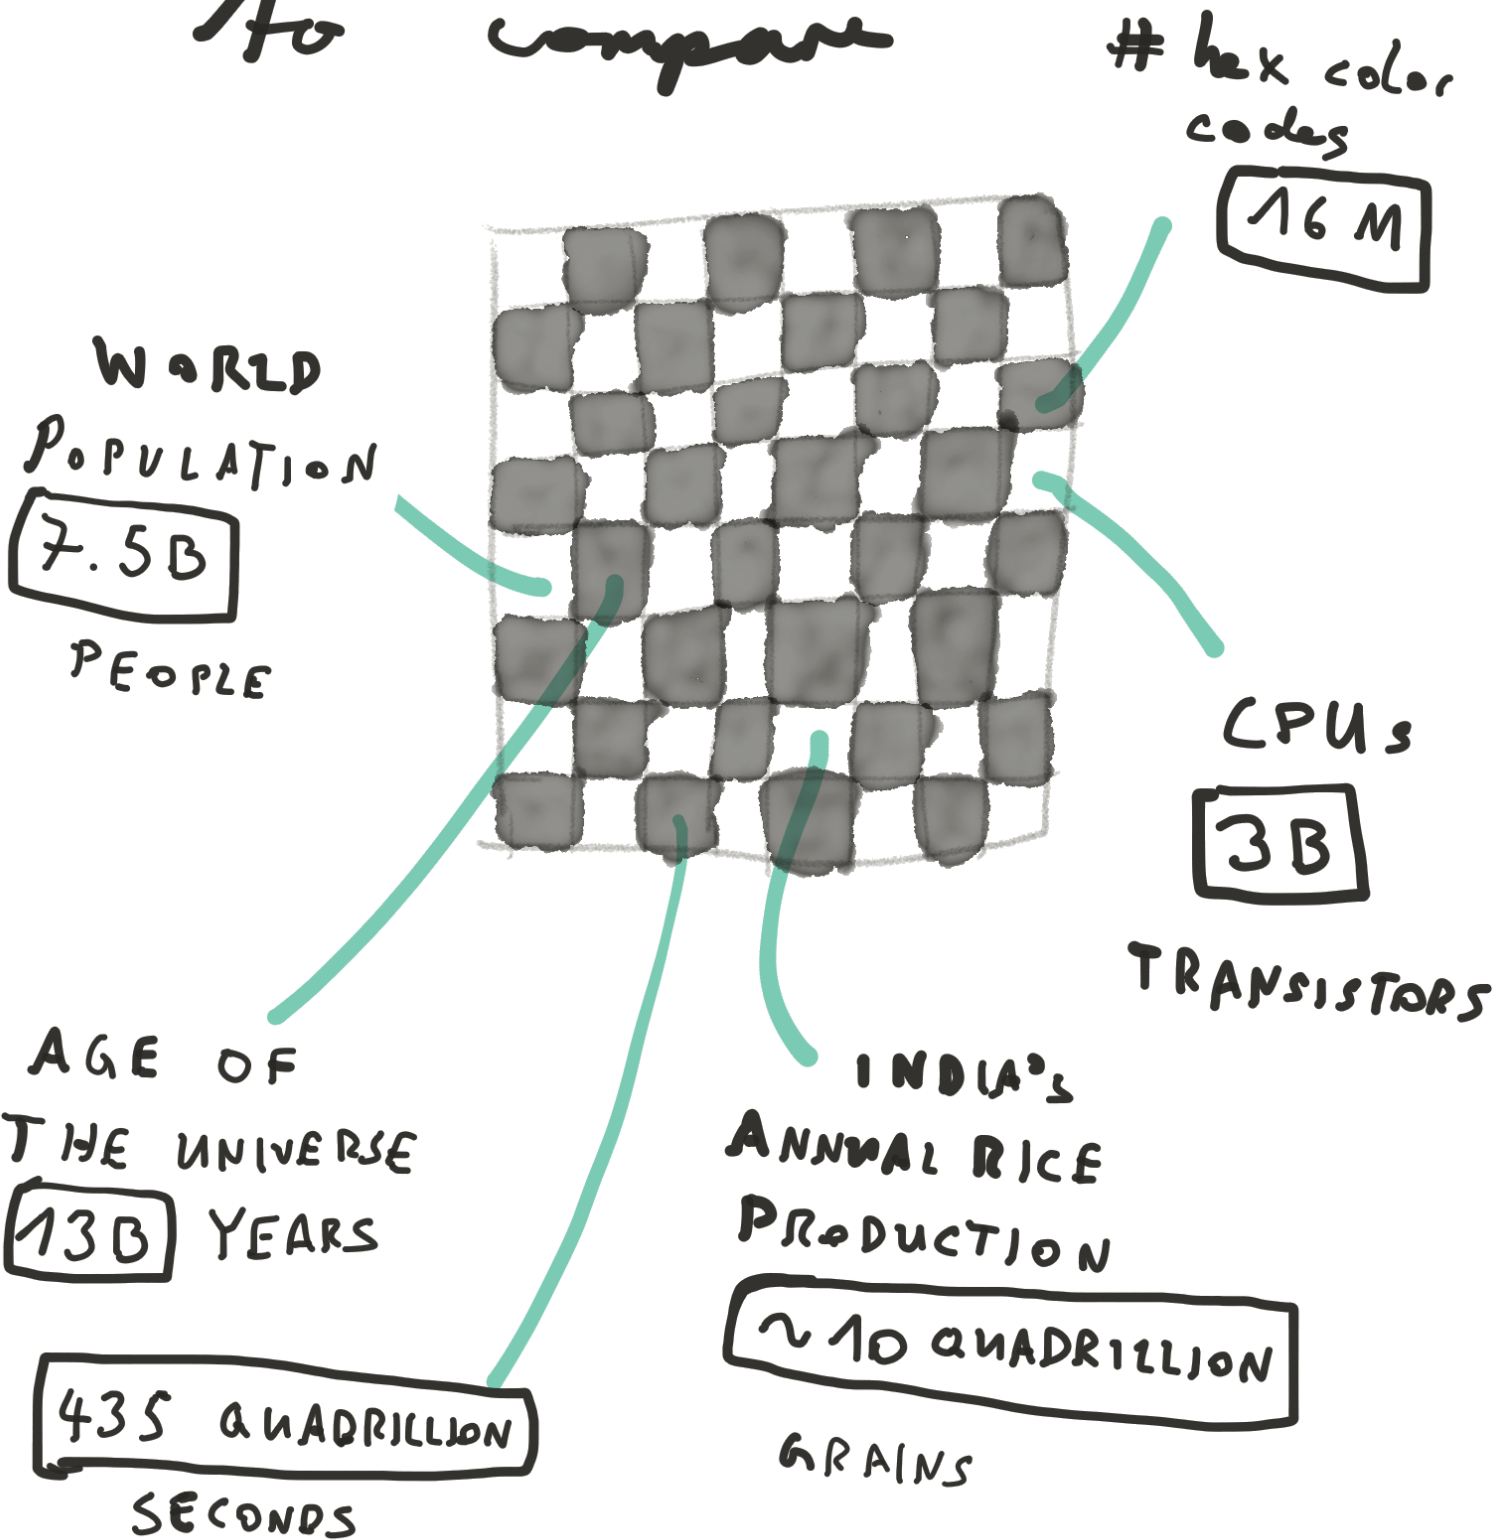 To compare
# hex color
codes
16 M
WORLD
POPULATION
7.5B
PEOPLE
CPUs
3B
TRANSISTORS
AGE OF
THE UNIVERSE
13B YEARS
435 QUADRILLION
SECONDS
INDIA's
ANNUAL RICE
PRODUCTION
~10 QUADRILLION
GRAINS